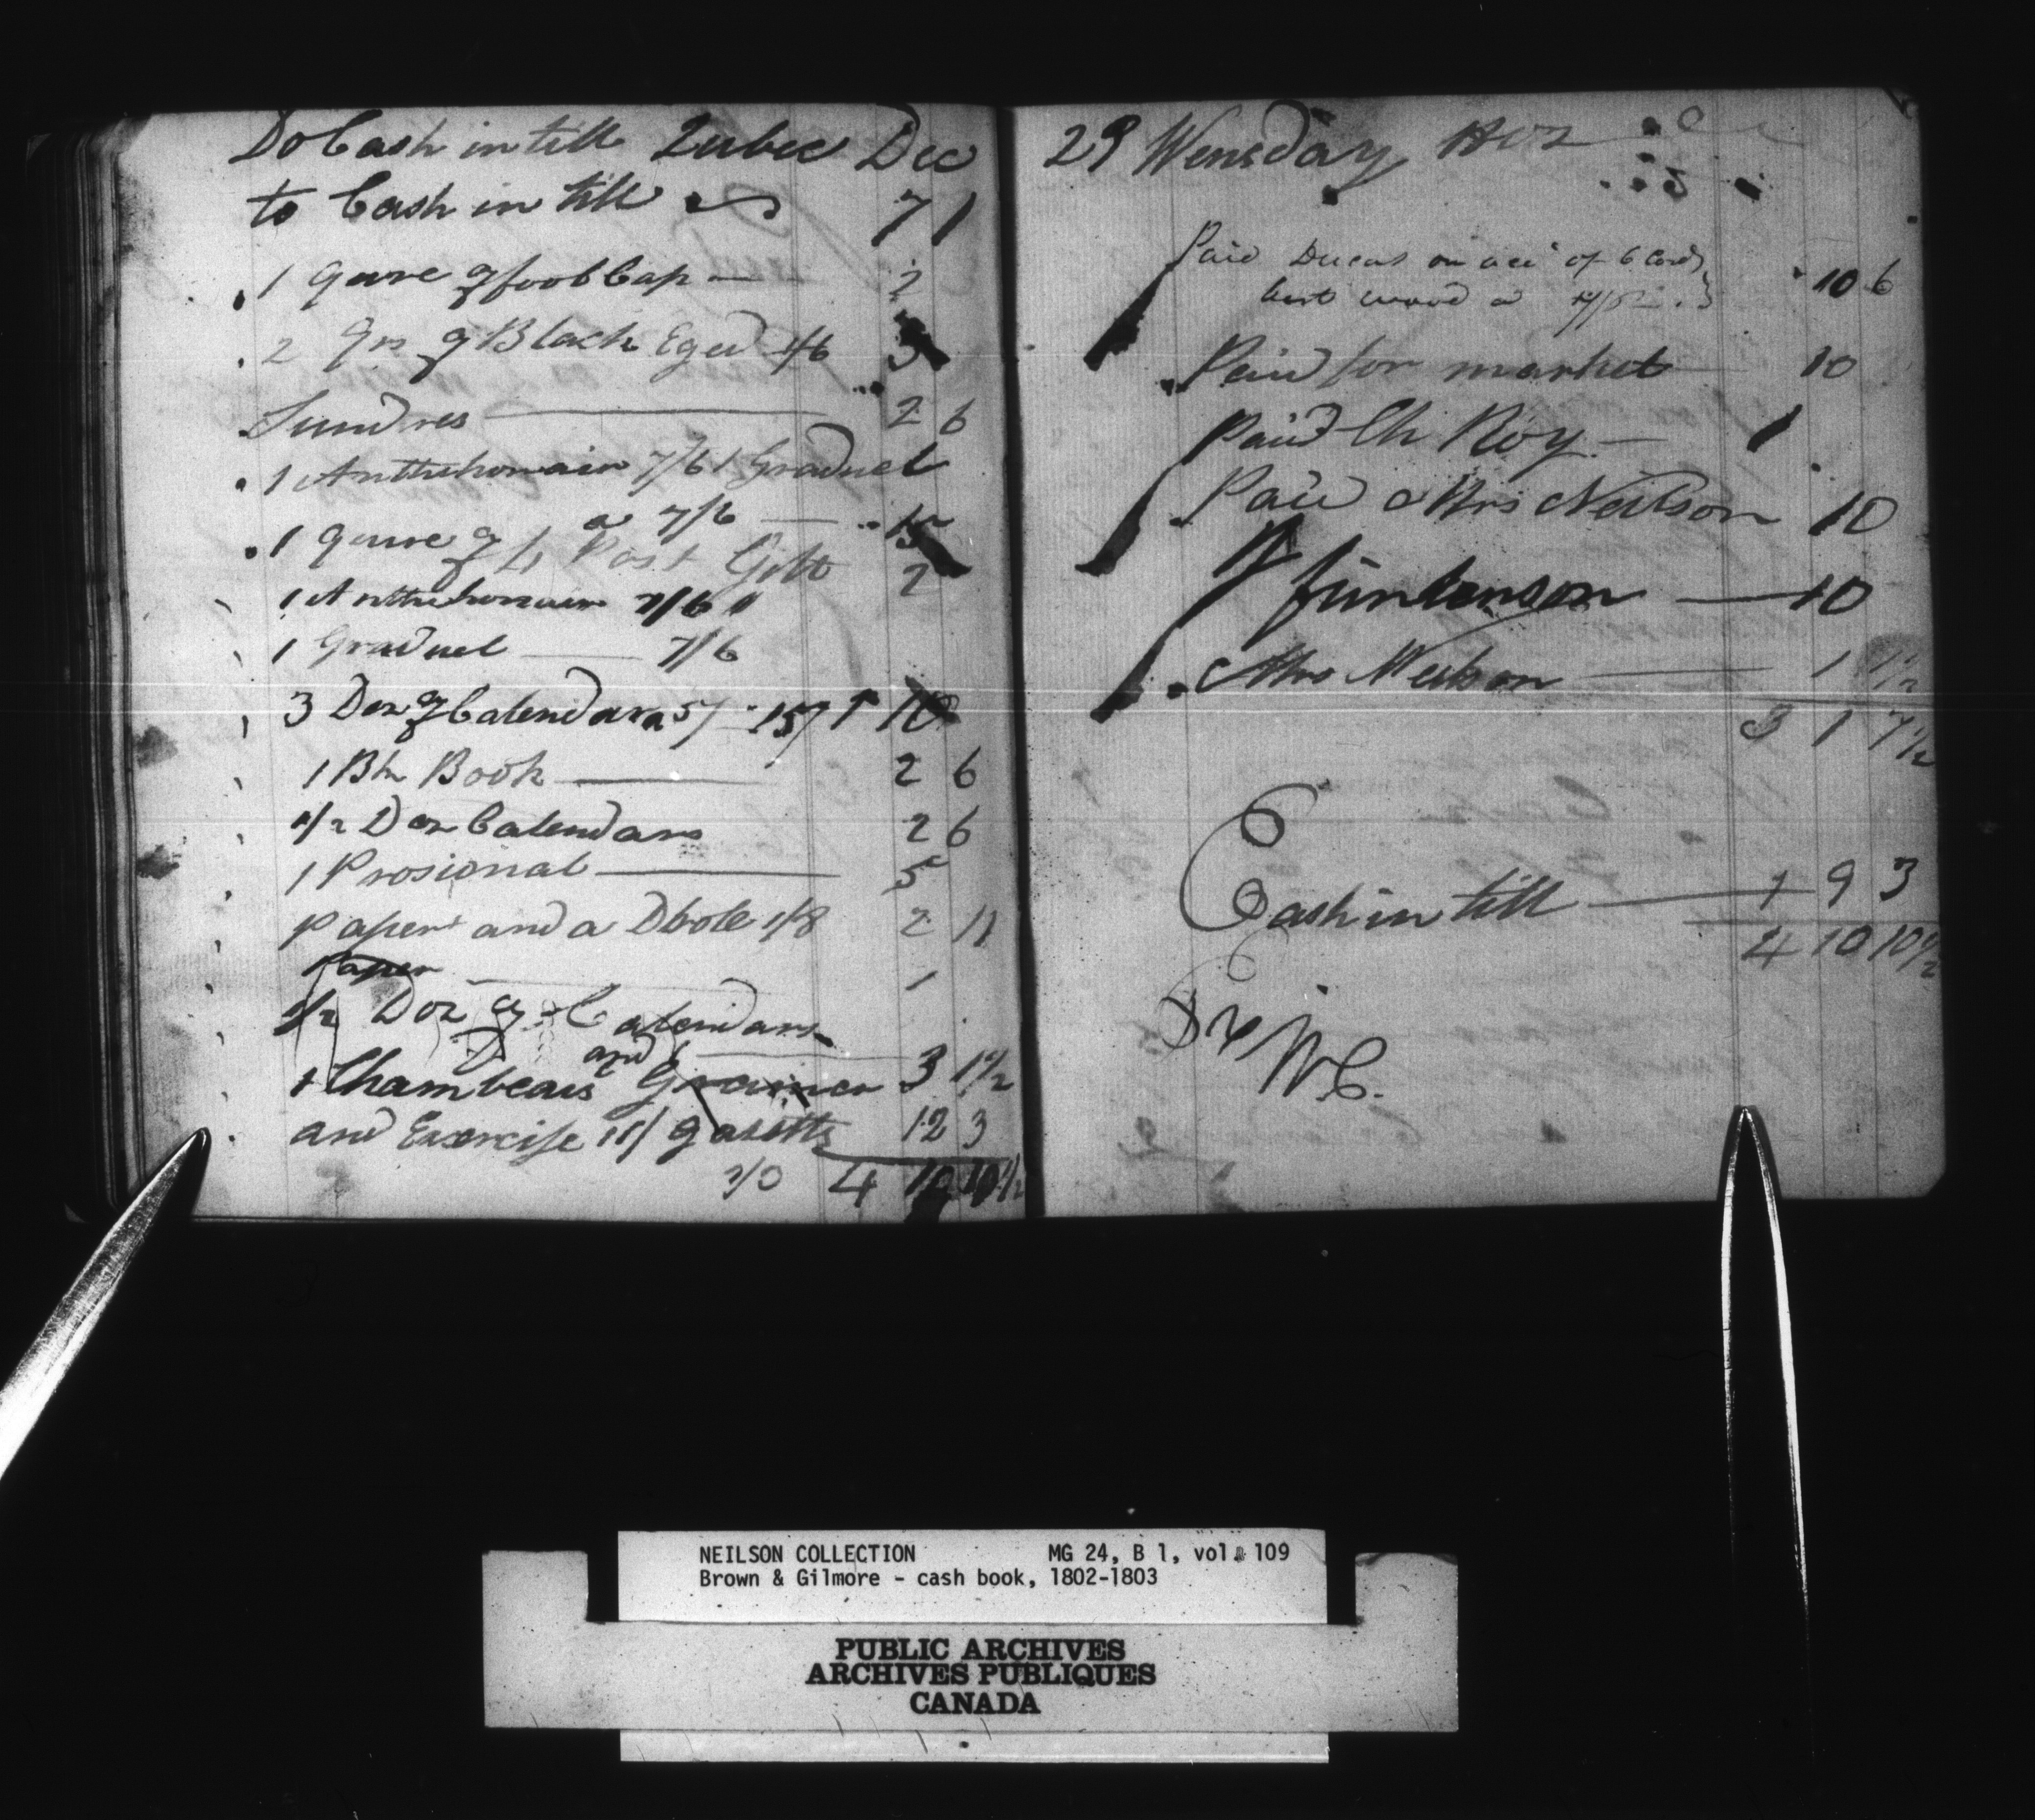 Do Cash in till Qubec Dec
to Cash in till 7 1
1 Quire of fools Cap — 2
2 Qrs of Black Eged 1/6 3
Sundres 2 6
1 Antiphonair 7/6 1 Graduel
a 7/6 — 15
1 Quire of 4 Post Gilt 2
1 Antiphonair 7/6
1 Graduel — 7/6
3 Doz of Calendars a 5/ 15/ 1 10
1 Bk Book — 2 6
1/2 Doz Calendars 2 6
1 Prosional — 5
Paper and a Dbole 1/8 2 11
Paper — 1
1/2 Doz of Calendars
1 Chambeaus and Gramer 3 1 1/2
and Exercise 11/ gasetts 12 3
4 10 10 1/2
29 Wensday 1802
Paid Ducas on acct of 6 Cords
wood a 10 6
Paid for market 10
Paid Ch Roy — 1
Paid Mrs Neilson 10
— 10
Mrs Neilson — 1 1 1/2
3 1 7 1/2
Cash in till — 1 9 3
4 10 10 1/2
WC.
NEILSON COLLECTION MG 24, B 1, vol. 109
Brown & Gilmore - cash book, 1802-1803
PUBLIC ARCHIVES
ARCHIVES PUBLIQUES
CANADA